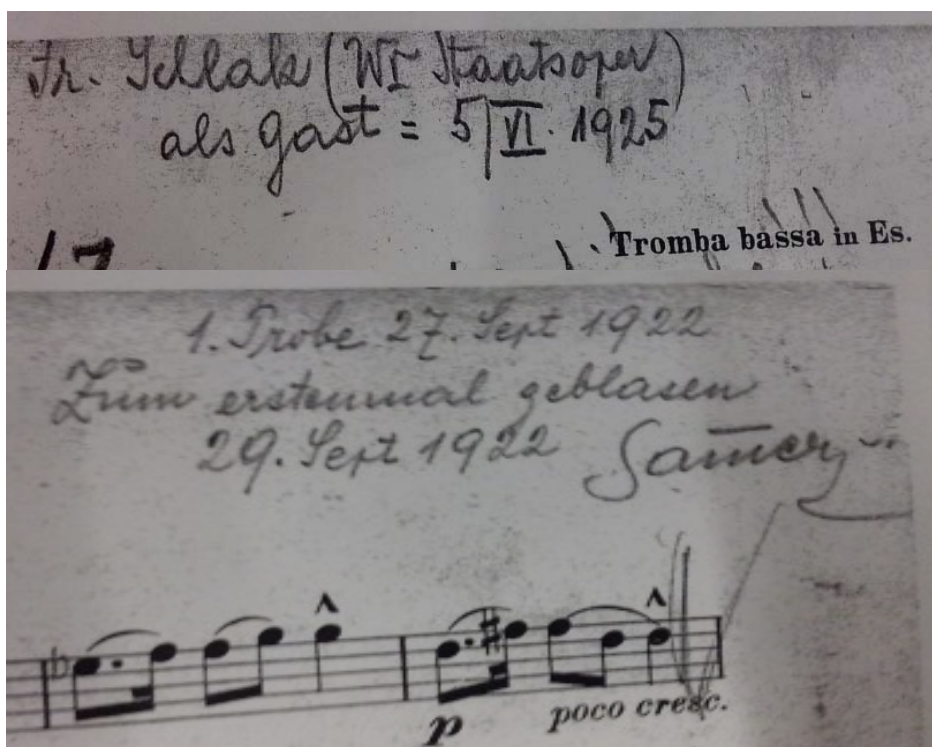 Fr. Sellak (Wr Staatsoper)
als Gast = 5/VI. 1925
17
Tromba bassa in Es.
1. Probe 27. Sept 1922
Zum erstenmal geblasen
29. Sept 1922
p poco cresc.